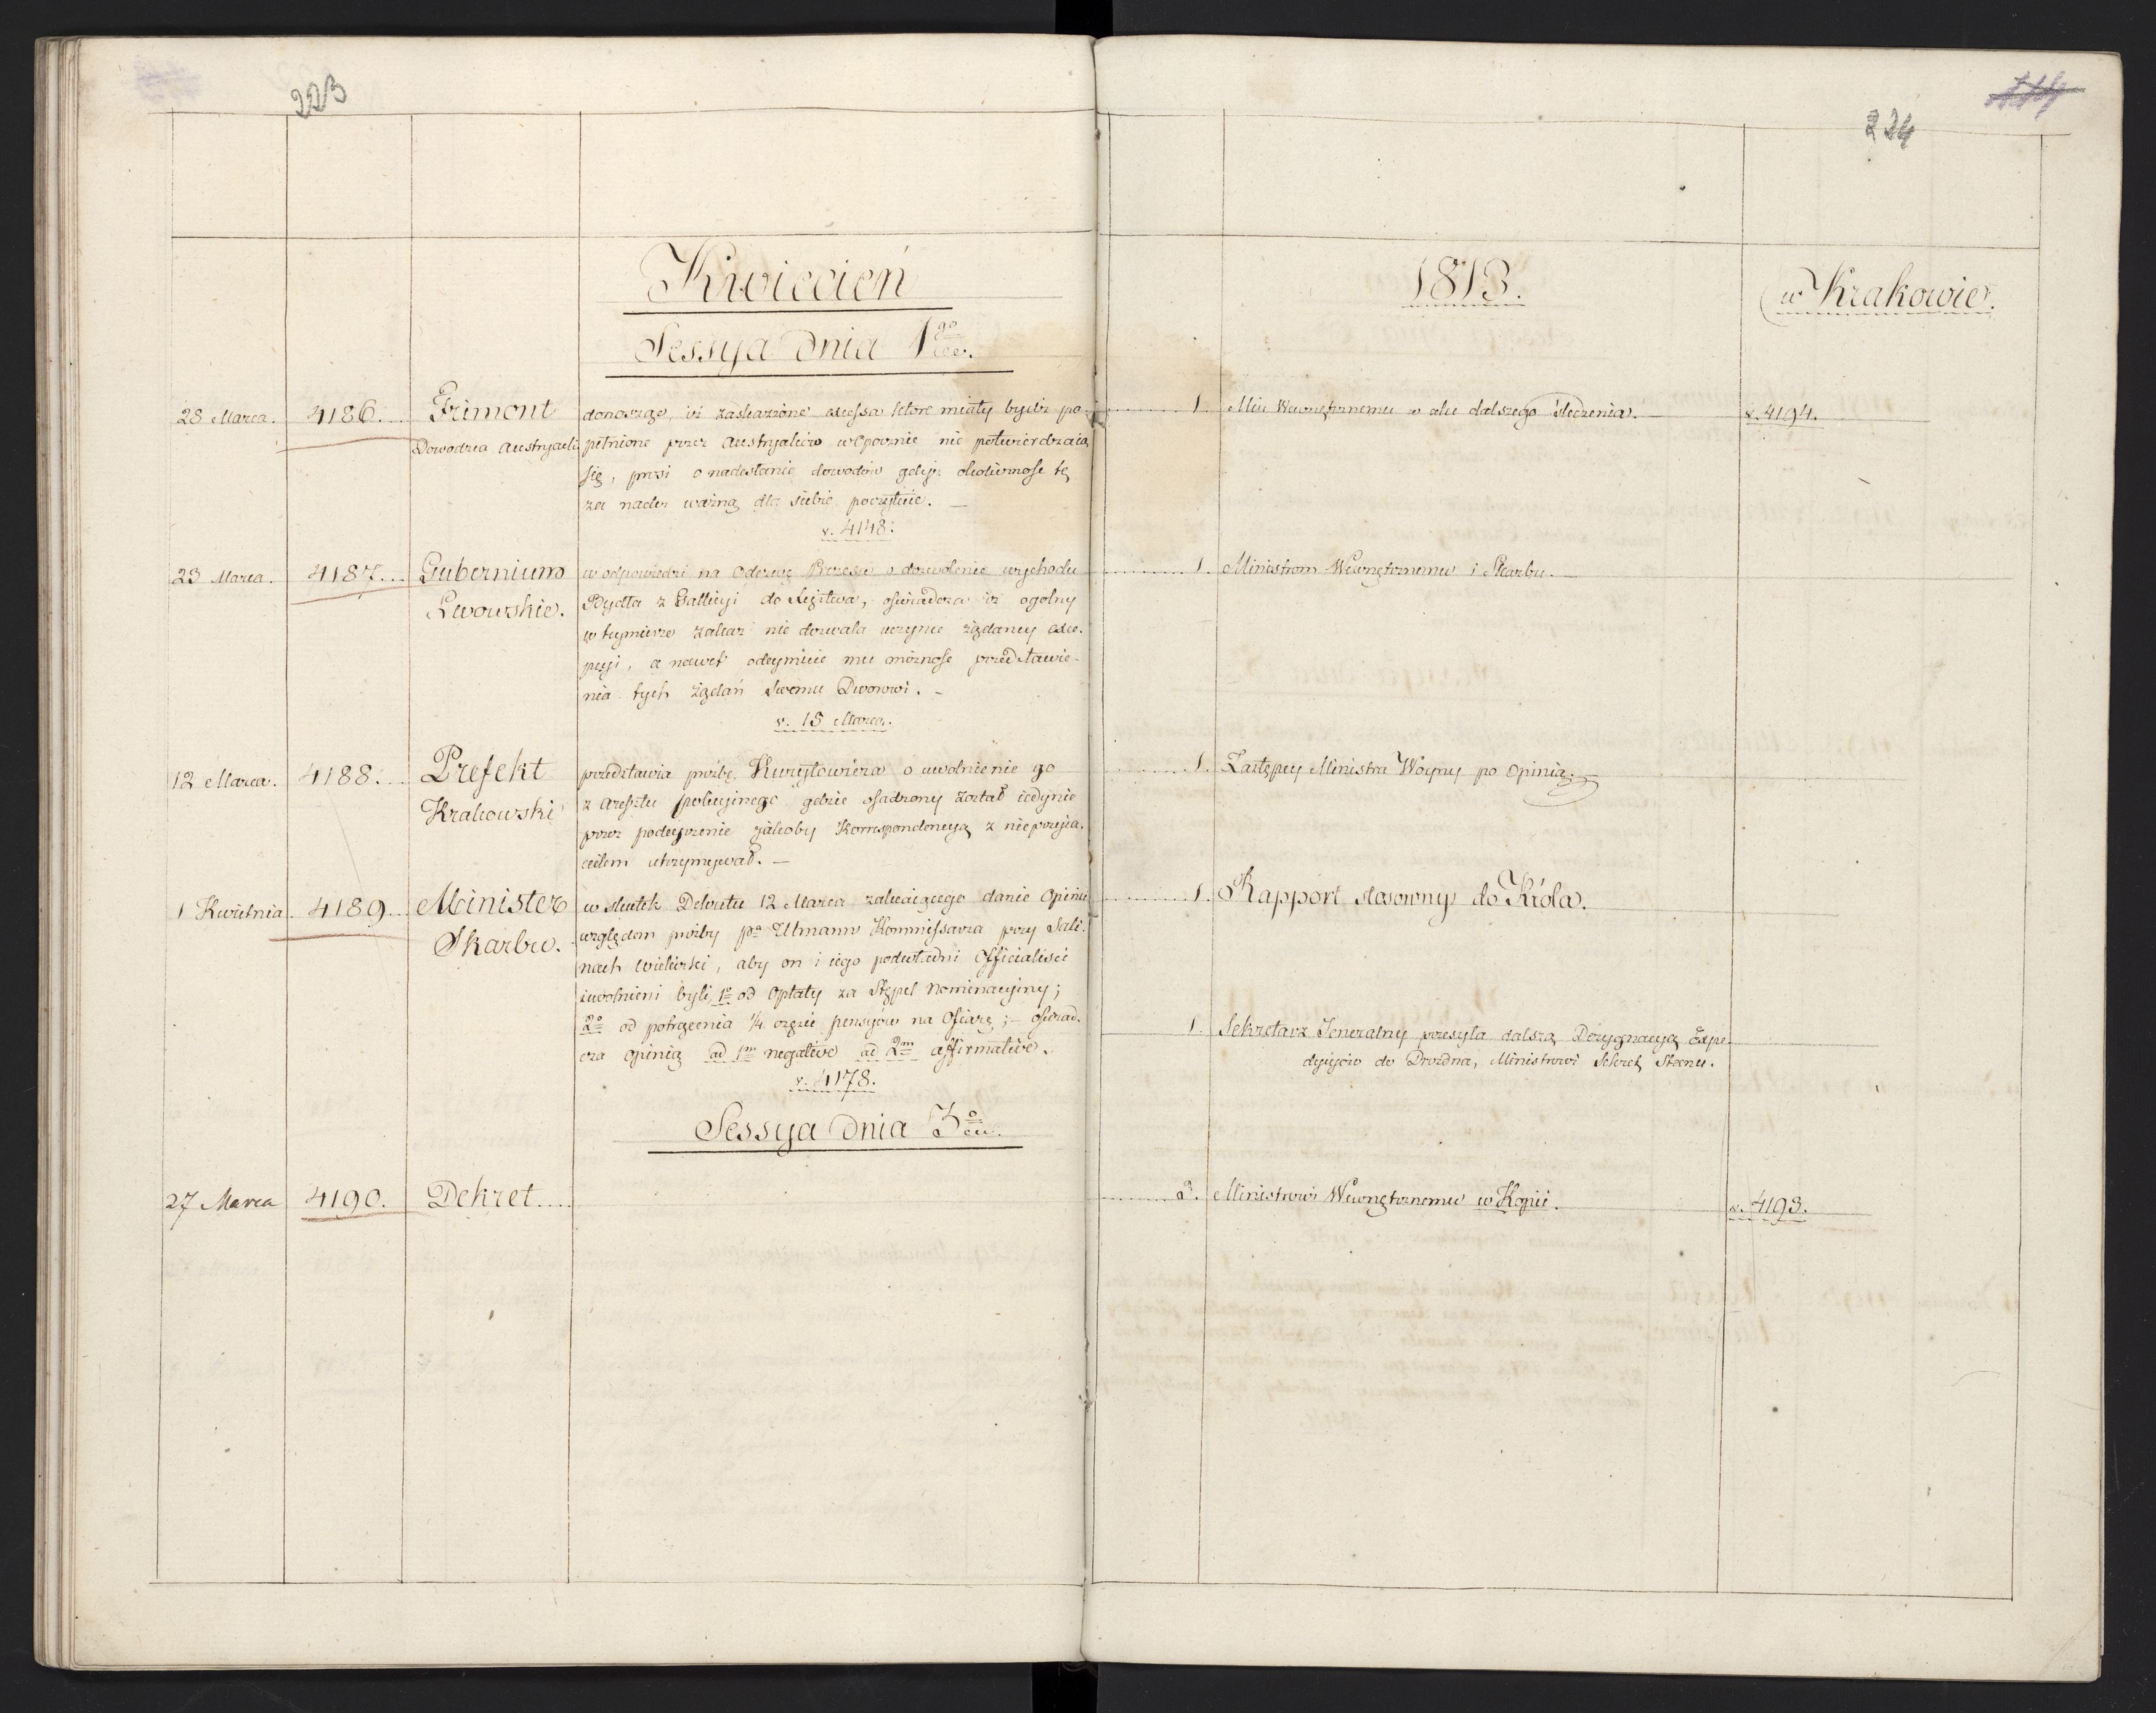 223
224
Kwiecień
1813.
w Krakowie.
Sessya dnia 1go
28 Marca. 4186. Frimont donosząc, iż zaskarżone excessa które miały bydź po- 1. Min Wewnętrznemu w celu dalszego śledzenia. v. 4194.
Dowodzca Austryacki pełnione przez Austryaków w Opocznie nie potwierdzaią
się, prosi o nadesłanie dowodów gdyż okoliczność tę
za nader ważną dla siebie poczytuie. —
v. 4148.
23 Marca. 4187. Gubernium w odpowiedzi na Odezwę Prezesa o dozwolenie wychodu 1. Ministrom Wewnętrznemu i Skarbu. —
Lwowskie. Bydła z Gallicyi do Xięztwa, oświadcza iż ogólny
w tymierze zakaz nie dozwala uczynić żądaney exce-
pcyi, a nawet odeymuie mu możność przedstawie-
nia tych żądań swemu Dworowi. –
v. 18 Marca.
12 Marca. 4188. Prefekt przedstawia prożbę Kuryłowicza o uwolnienie go 1. Zastępcy Ministra Woyny po opinią.
Krakowski z aresztu policyinego gdzie osadzony został iedynie
przez podeyrzenie jakoby Korrespondencyą z nieprzyia-
cielem utrzymywał. —
1 Kwietnia. 4189. Minister w skutek Dekretu 12 Marca zalecaiącego danie Opinii 1. Rapport stosowny do Króla.
Skarbu. względem prożby pa Ulmann Kommissarza przy Sali-
nach Wieliczki, aby on i iego podwładni Officialisci
zwolnieni byli 1o od Opłaty za Stępel Nominacyiny;
2o od potrącenia 1/4 części pensyów na Ofiarę; – oświad-
cza opinią ad 1m negative ad 2m affirmative.
v. 4178.
1. Sekretarz Jeneralny przesyła dalszą Dezygnacyą Expe-
dycyów do Drezdna, Ministrowi Sekret Stanu.
Sessya dnia 3o
27 Marca 4190. Dekret.... 2. Ministrowi Wewnętrznemu w Kopii. v. 4193.